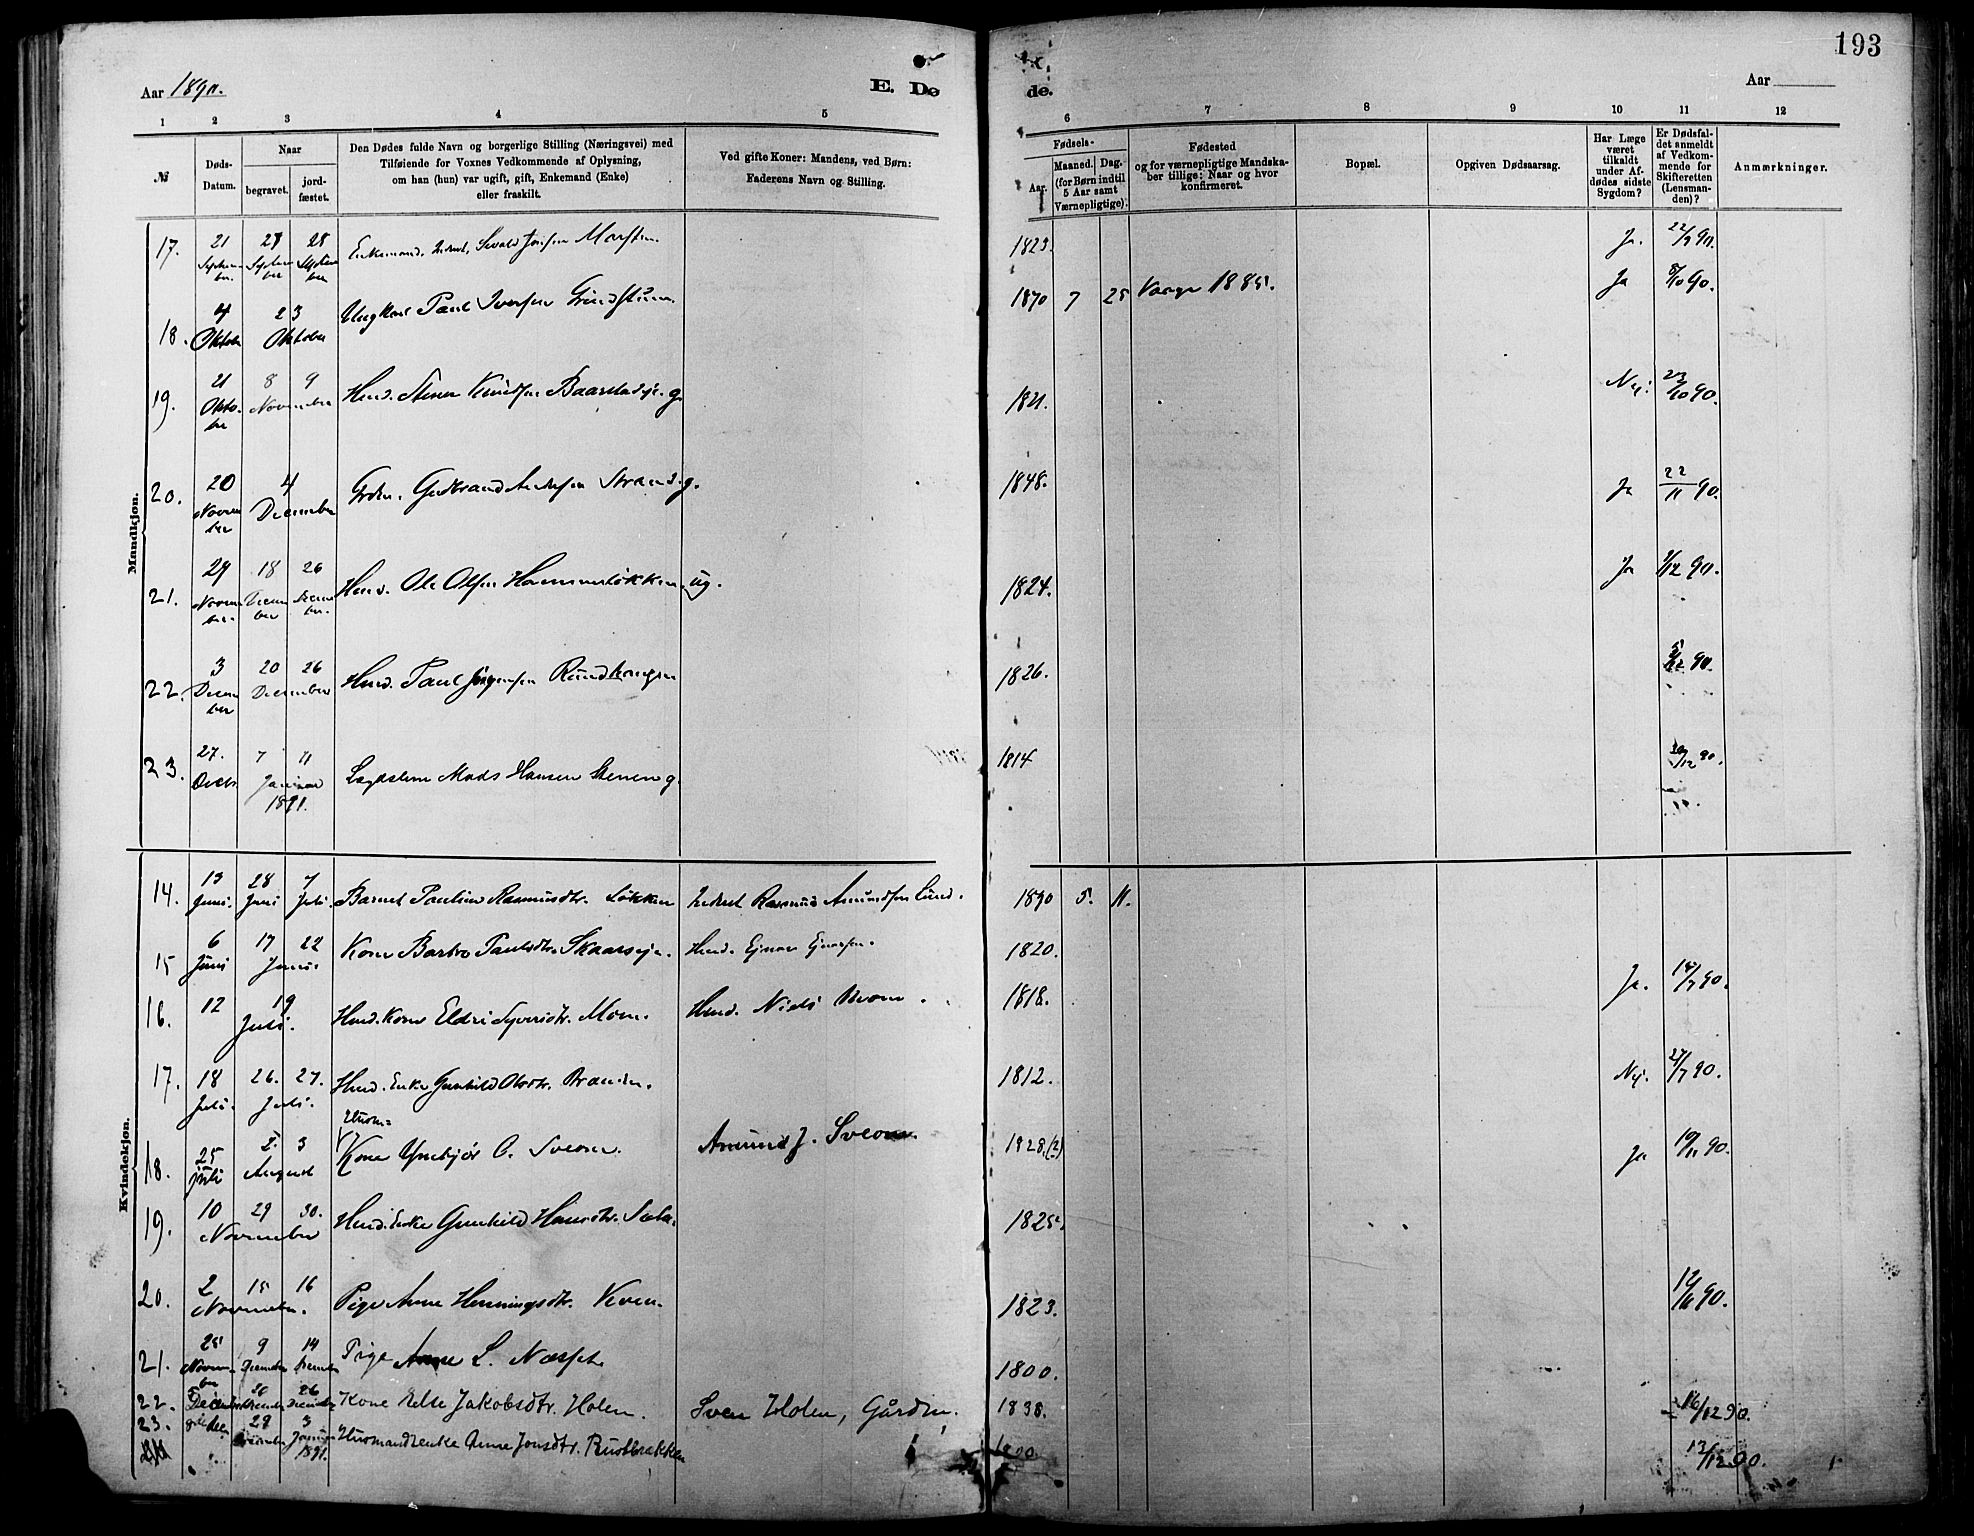 193
Aar 1890.
E. Dø
de.
Aar
1 2 3 4 5 6 7 8 9 10 11 12
№
Døds-
Datum.
Naar
begravet.
jord-
fæstet.
Den Dødes fulde Navn og borgerlige Stilling (Næringsvei) med
Tilføiende for Voxnes Vedkommende af Oplysning,
om han (hun) var ugift, gift, Enkemand (Enke)
eller fraskilt.
Ved gifte Koner: Mandens, ved Børn:
Faderens Navn og Stilling.
Fødsels-
Aar.
Maaned. Dag.
(for Børn indtil
5 Aar samt
Værnepligtige).
Fødested
og for værnepligtige Mandska-
ber tillige: Naar og hvor
konfirmeret.
Bopæl.
Opgiven Dødsaarsag.
Har Læge
været
tilkaldt
under Af-
dødes sidste
Sygdom?
Er Dødsfal-
det anmeldt
af Vedkom-
mende for
Skifteretten
(Lensman-
den)?
Anmærkninger.
Mandkjøn.
17. 21 Septem-ber. 27 Septem-ber 28 Septem-ber Enkemand, Sivald 1823. Ja. 22/9 90.
18. 4 Oktober 23 Oktober Ungkarl Paul Iversen 1870 7 25 Vaage 1885. Ja 8/10 90.
19. 21 Okto-ber 8 9 November Husm. Stener Knudsen g. 1821. Nej. 23/10 90.
20. 20 Novem-ber 4 December Grdm. Gudbrand Strand. g. 1848. Ja 22/11 90.
21. 29 Novem-ber. 18 Decem-ber 26 Decem-ber. Husm. Ole Olsen Hammerløkken. ug. 1824. Ja 1/12 90.
22. 3 Decem-ber 20 26 December Husm. Paul Jørgensen Rundhaugen 1826. 5/12 90.
23. 27. Decbr. 7 11 Januar 1891. Lægdslem Mads Hansen Stenen g. 1814 30/12 90.
Kvindekjøn.
14. 13 Juni. 28 Juni 7 Juli. Barnet Pauline Rasmusdtr. Løkken Inderst Rasmus Amundsen Lund. 1890 5. 11.
15 6 Juni 17 22 Juni. Kone Barbro Paulsdtr. Husm. Ejnar Ejnarsen. 1820.
16. 12 19 Juli. Husm. Kone Eldri Syversdtr. Moen. Husm. Niels Moen. 1818. Ja. 14/7 90.
17. 18 Juli. 26. 27. Juli. Husm. Enke Gunhild Olsdtr. Branden. 1812. Nej. 27/7 90.
18. 25 Juli 2. 3 August Husm= Kone Ingebjør O. Sveom. Amund J. Sveom. 1828(?) Ja 19/11 90.
19. 10 29 30. November Husm. Enke Gunhild Hansdtr. 1825.
20. 2 15 16 November. Pige Anne Henningsdtr. Kven. 1823. 12/11 90.
21. 25 Novem-ber 9 December 14 December Pige Anne L. Næsset. 1800.
22. 5 December 20 December 26 December Kone Else Jakobsdtr. Holen. Sven Holen, Gårdm. 1838. 16/12 90.
23. 9de 29 December 3 Januar 1891. Husmandsenke Anne Jonsdtr. Rustbrækken 13/12 90.